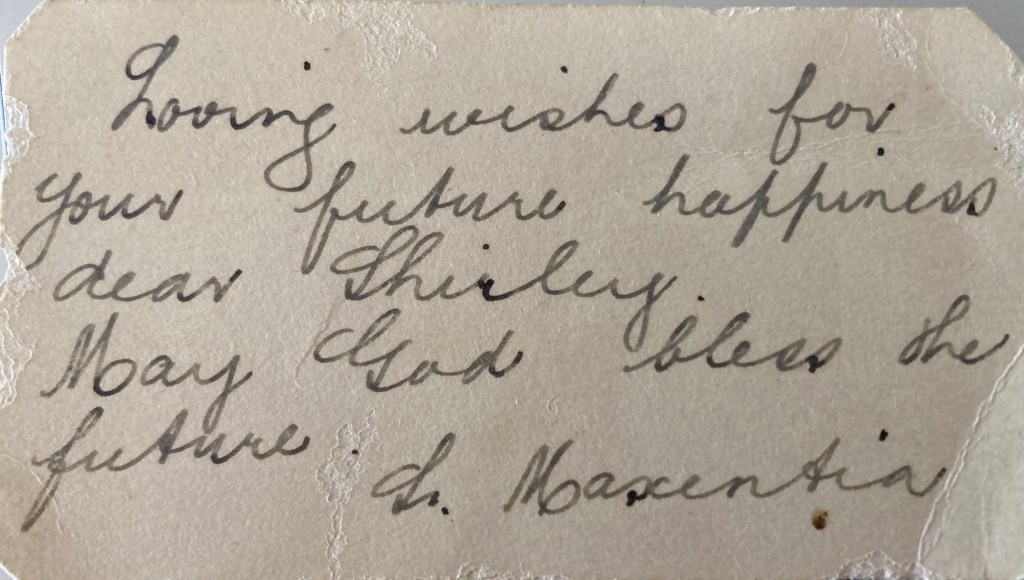 Loving wishes for
your future happiness
dear Shirley.
May God bless the
future.
S. Maxentia